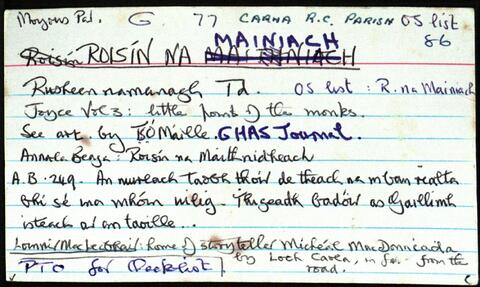 Moyrus Pal. G 77 CARNA R.C. PARISH OS list
86
Roisín ROISÍN NA MAINIACH
Rusheennamanagh Td. OS list : R. na Mainiach
Joyce Vol 3 : little point of the monks.
See art. by T.S. Ó Máille. GHAS Journal.
Annála Beaga : Roisín na Maithnidheach
A.B. 249. An muileach taobh thoir de theach na mban rialta
bhí sé ina mhóin uilig. Thigeadh bádóir as Gaillimh
isteach ar an taoille...
Home of storyteller Micheál Mac Donncadha
by Loch Carea, in far from the
road.
PTO for Checklist